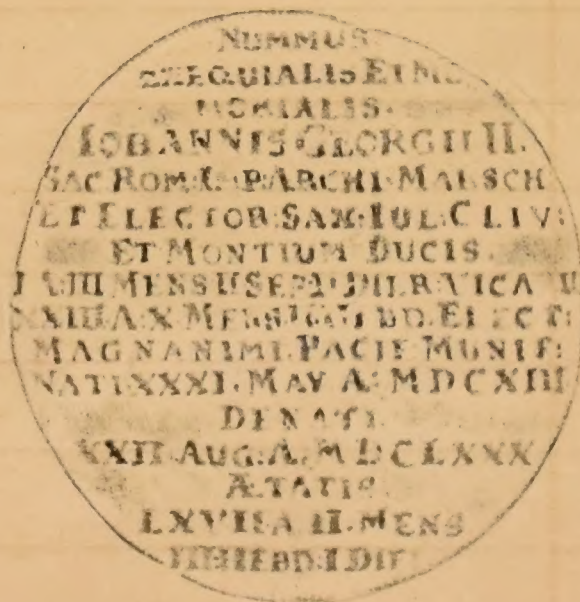 NUMMUS
EXEQUIALIS ET ME
MORIALIS.
IOBANNIS GEORGII II.
SAC ROM I. P ARCHI MARSCH
ET ELECTOR SAX: IUL: CLIV:
ET MONTIUM DUCIS.
MENS II SEPT:
XXIII A. X MENS ELECT:
MAGNANIMI. PACIF MUNIF:
NATI XXXI. MAY A: MDCXIII
DENATI
XXII AUG: A. MDCLXXX
ÆTATIS.
LXVII A II. MENS
HEBD: I DIE